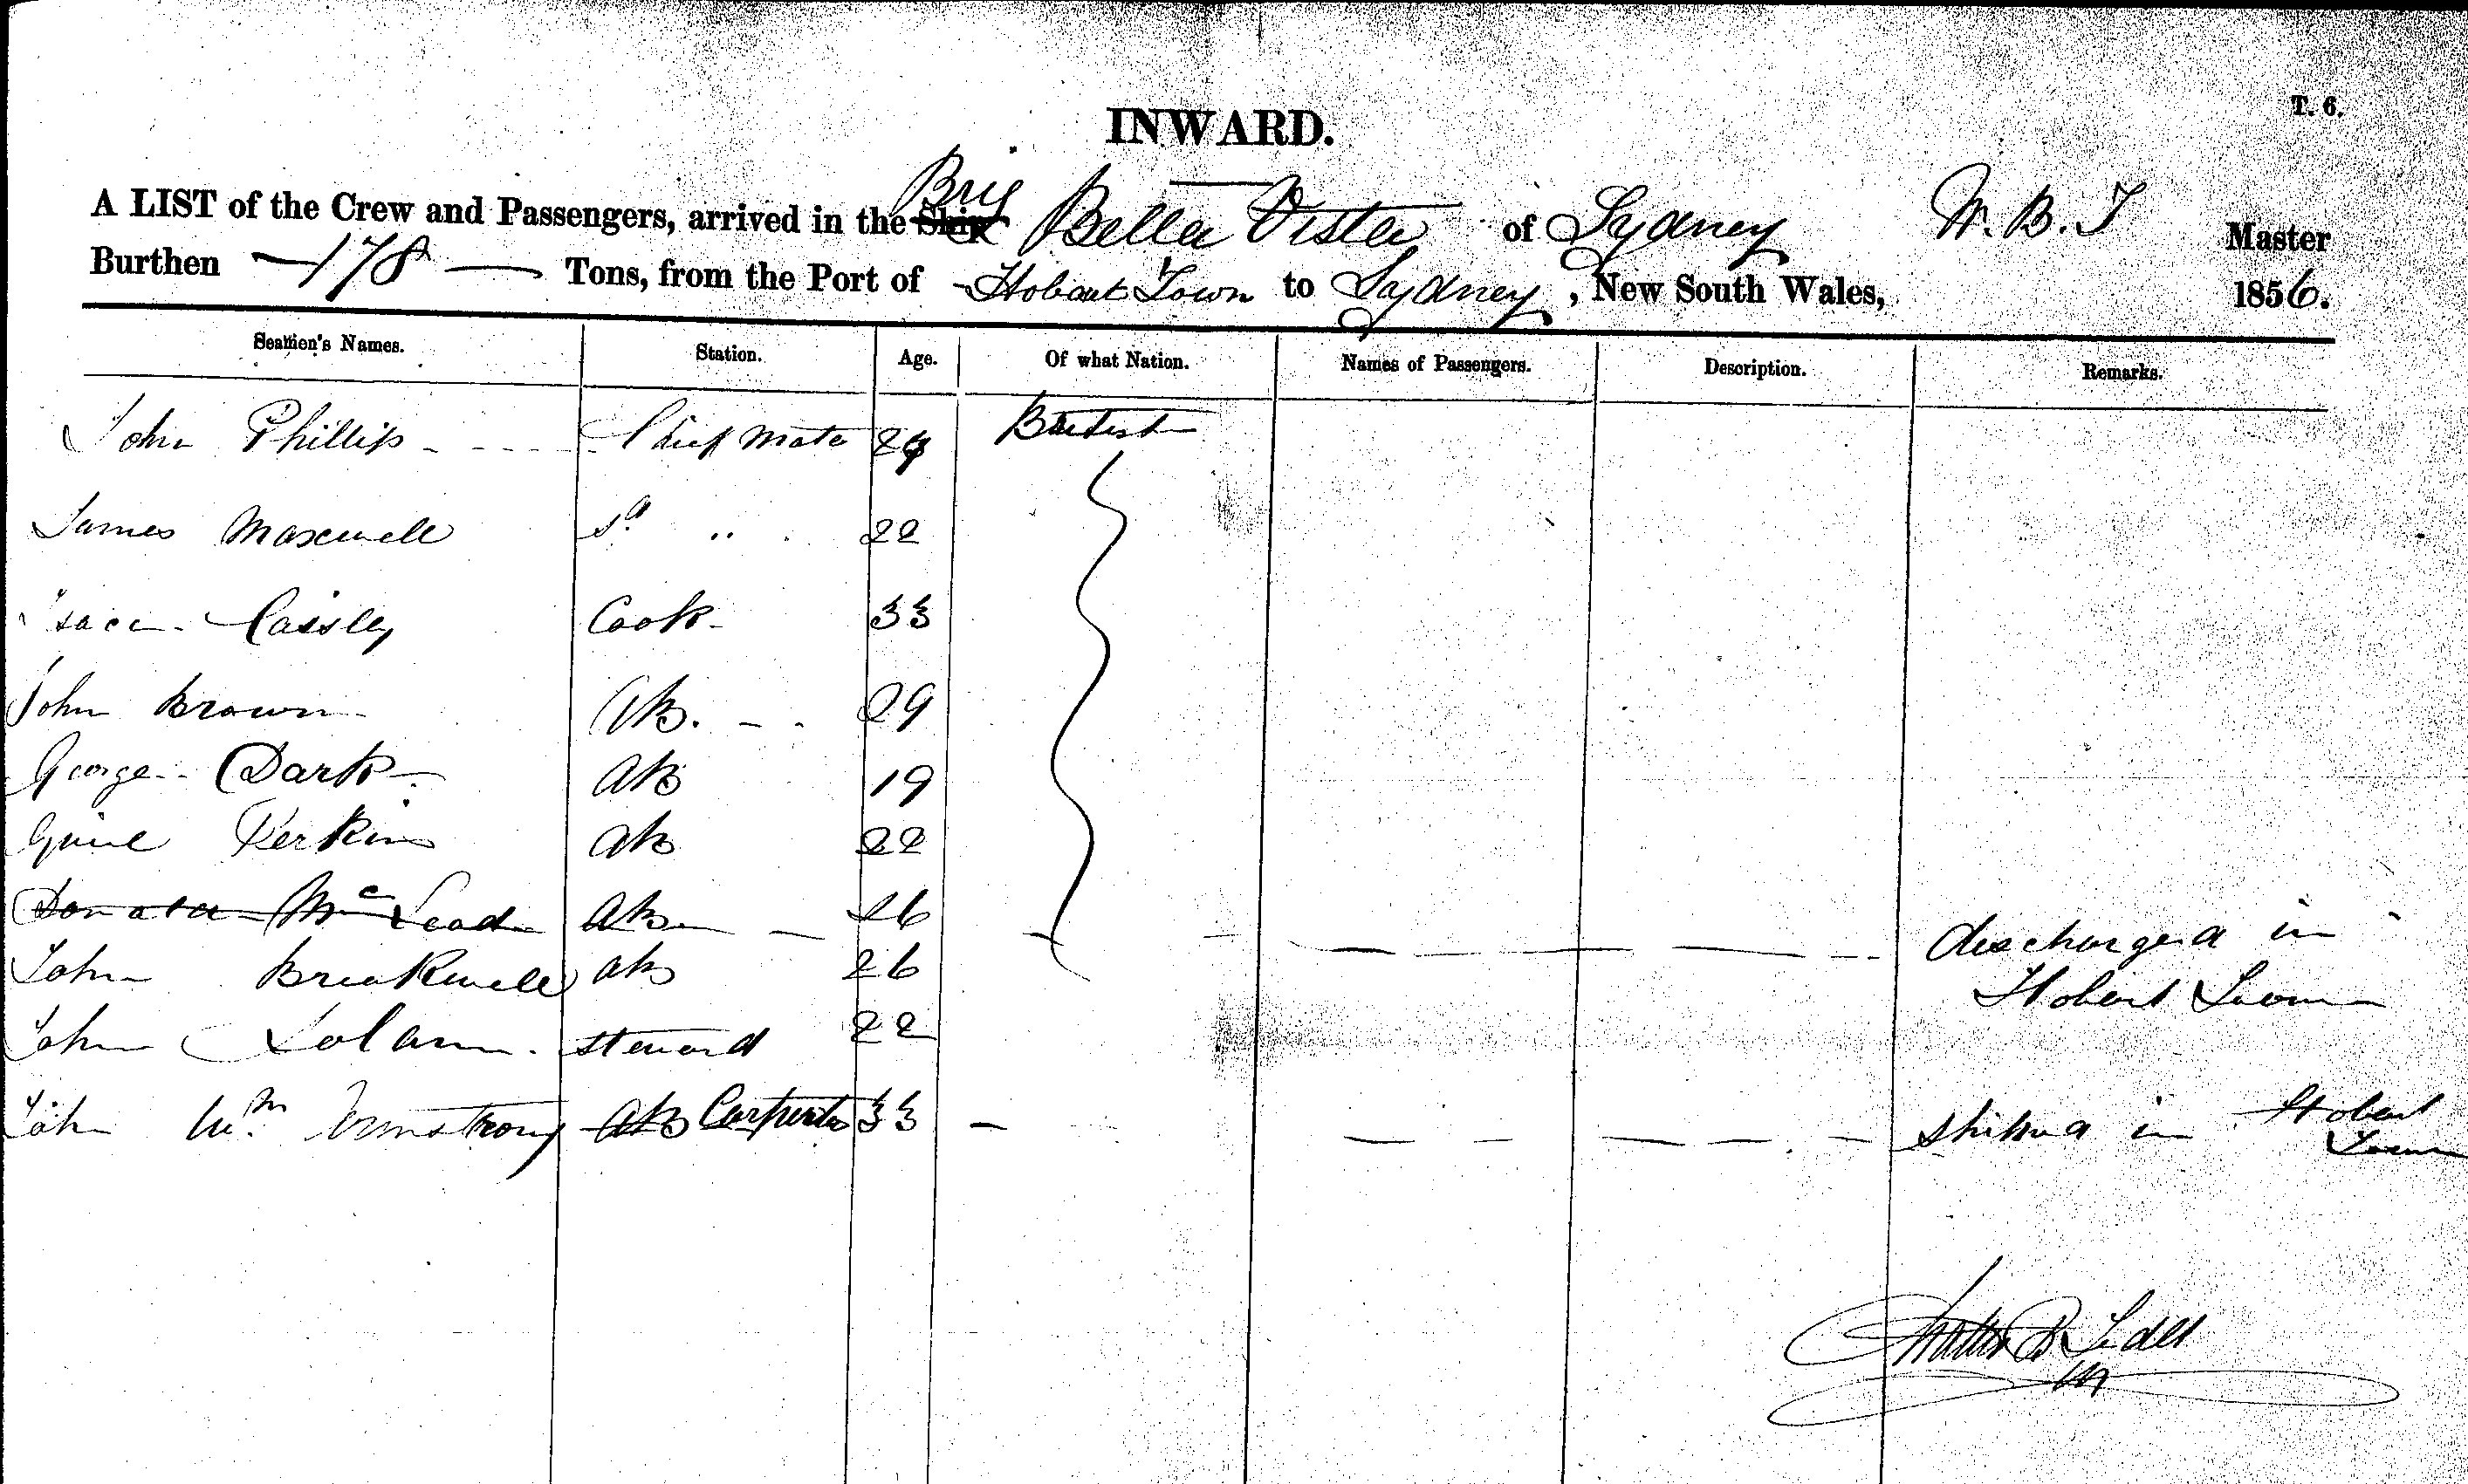 T. 6.
INWARD.
A LIST of the Crew and Passengers, arrived in the Ship Brig Bella Vista of Sydney W. B. T Master
Burthen — 178 — Tons, from the Port of Hobart Town to Sydney, New South Wales, 1856.
Seamen's Names. Station. Age. Of what Nation. Names of Passengers. Description. Remarks.
John Phillips Chief Mate British
James Maxwell 22
Cook 33
John Brown AB. 29
George Dark AB 19
Perkins AB 22
McLeod AB 26 discharged in
John Breakwell AB 26 Hobart Town
John steward 22
John Wm Armstrong AB Carpenter 33 — shipped in Hobart
Town